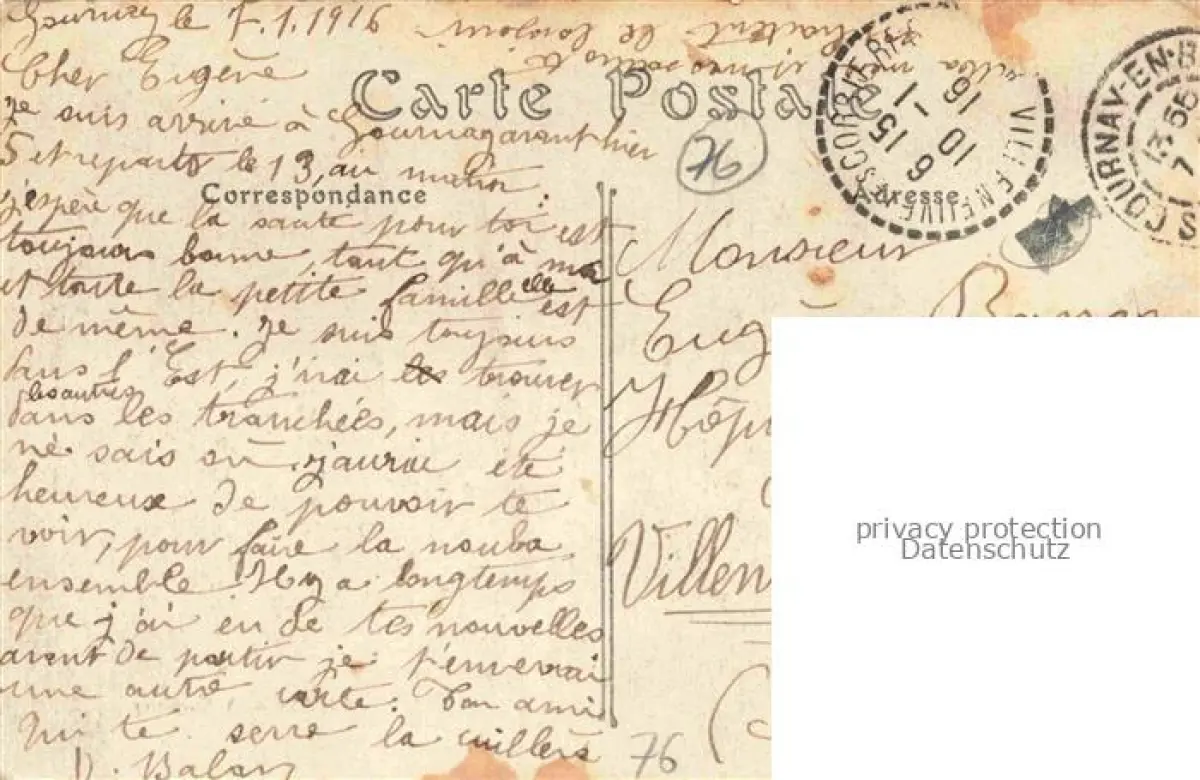 Gournay le 7.1.1916
Cher Eugène
Carte Postale
je suis arrivé à Gournay avant hier
5 et repart le 13, au matin
Correspondance
j'espère que la santé pour toi est
toujours bonne, tant qu'à moi
et toute la petite famille elle est
de même. Je suis toujours
dans l'Est, j'irai trouver
les autres
dans les tranchées, mais je
ne sais où. j'aurai été
heureux de pouvoir te
voir, pour faire la nouba
ensemble. Il y a longtemps
que j'ai eu de tes nouvelles
avant de partir je t'enverrai
une autre carte. Ton ami
qui te serre la cuillère
D. Balan
76
VILLENEUVE
10 -1 16
6 15
GOURNAY-EN-B
13 55
7 1
Adresse
Monsieur
Eug
Hôp
Villen
76
privacy protection
Datenschutz